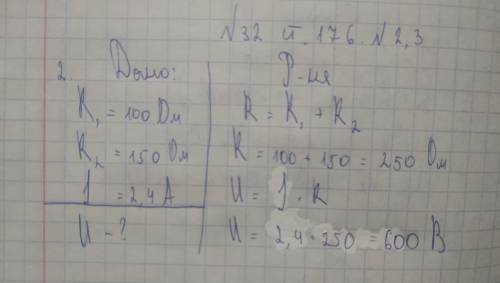 №32 п. 176. №2,3
2. Дано:
R₁ = 100 Ом
R₂ = 150 Ом
I = 2,4 А
U - ?
Р-ня
R = R₁ + R₂
R = 100 + 150 = 250 Ом
U = I · R
U = 2,4 · 250 = 600 В